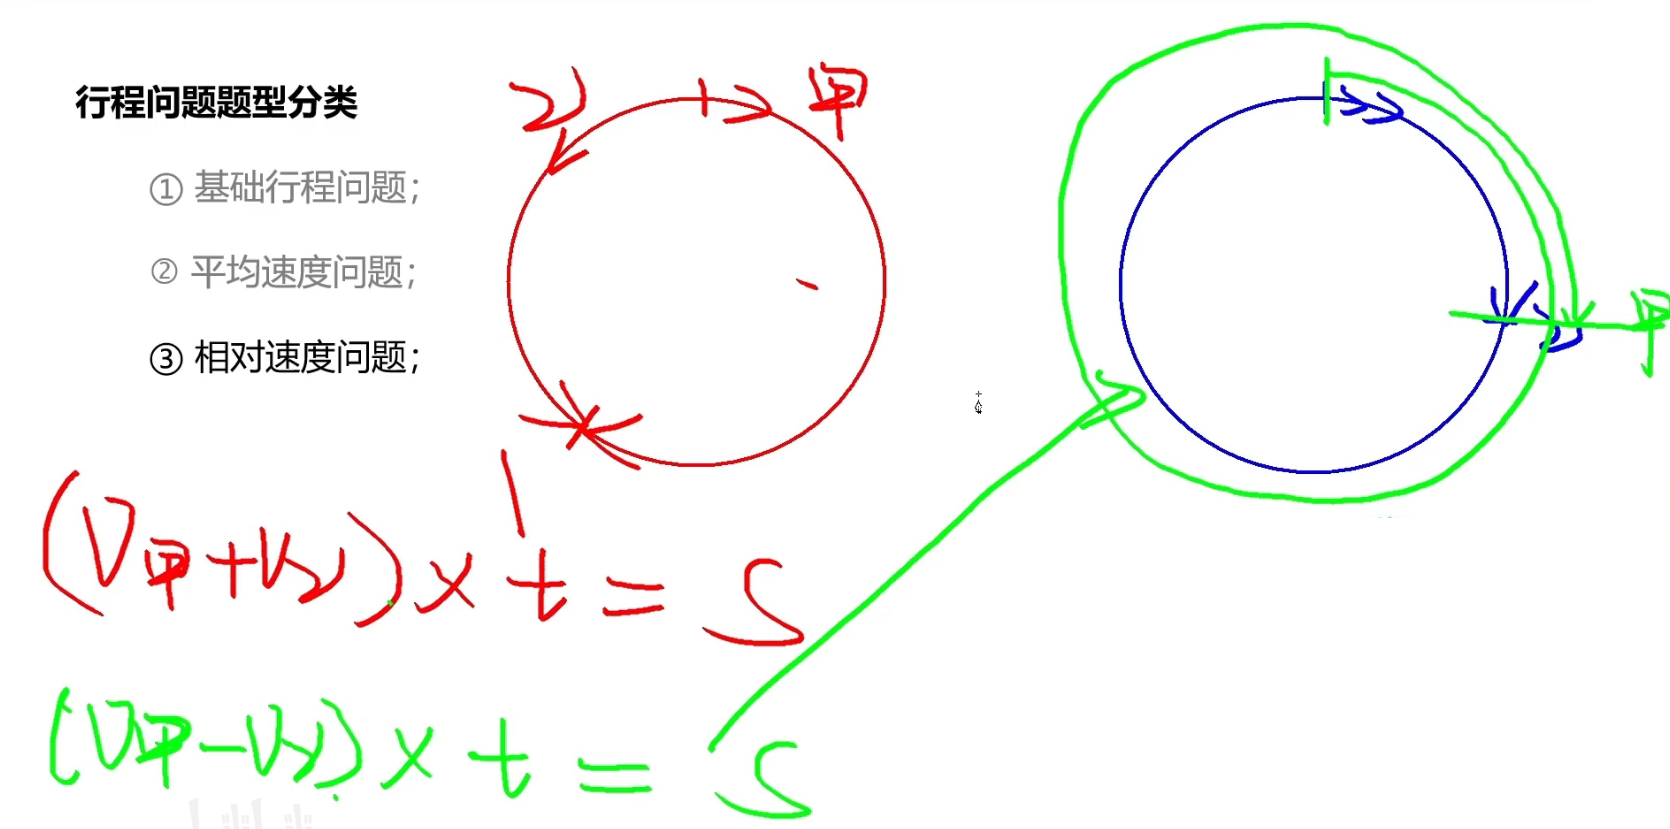 行程问题题型分类
① 基础行程问题；
② 平均速度问题；
③ 相对速度问题；
乙 甲
甲
(V甲+V乙)×t=S
(V甲-V乙)×t=S